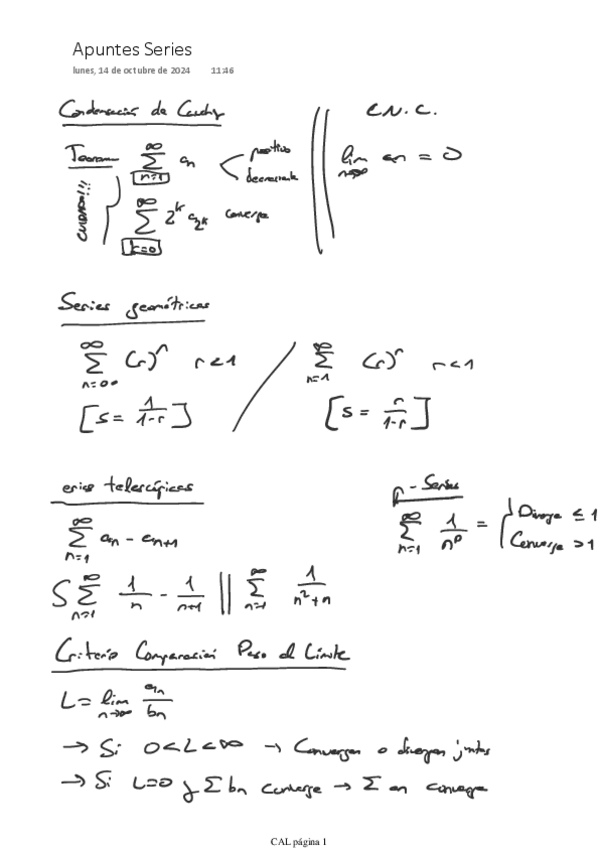 Apuntes Series
lunes, 14 de octubre de 2024 11:46
Condensación de Cauchy
C.N.C.
Teorema ∑_{n=1}^{∞} aₙ < positiva
decreciente
lim_{n→∞} aₙ = 0
cuidado!!!
∑_{k=0}^{∞} 2^k a_{2^k} converge
Series geométricas
∑_{n=0}^{∞} (r)^n r < 1 / ∑_{n=1}^{∞} (r)^n r < 1
[S = 1/(1-r)] / [S = r/(1-r)]
eries telescópicas
p-Series
∑_{n=1}^{∞} aₙ - aₙ₊₁
∑_{n=1}^{∞} 1/n^p = { Diverge ≤ 1
Converge > 1
S ∑_{n=1}^{∞} 1/n - 1/(n+1) || ∑_{n=1}^{∞} 1/(n²+n)
Criterio Comparación Paso al Límite
L = lim_{n→∞} aₙ/bₙ
→ Si 0 < L < ∞ → Convergen o divergen juntas
→ Si L=0 y ∑ bₙ converge → ∑ aₙ converge
CAL página 1